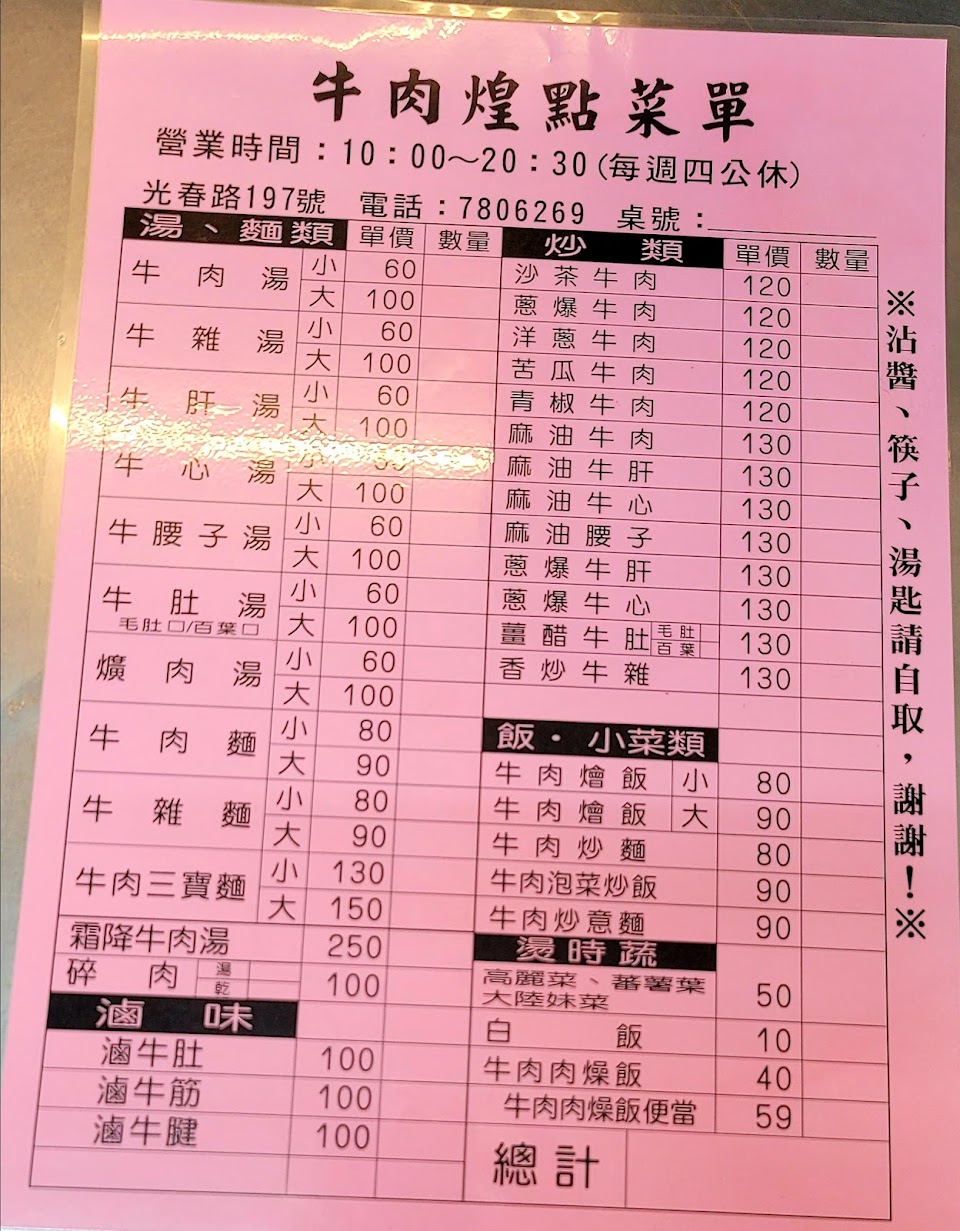 牛肉煌點菜單
營業時間：10：00～20：30(每週四公休)
光春路197號 電話：7806269 桌號：
湯、麵類 單價 數量
牛肉湯 小 60
大 100
牛雜湯 小 60
大 100
牛肝湯 小 60
大 100
牛心湯 小
大 100
牛腰子湯 小 60
大 100
牛肚湯 小 60
毛肚□/百葉□ 大 100
爌肉湯 小 60
大 100
牛肉麵 小 80
大 90
牛雜麵 小 80
大 90
牛肉三寶麵 小 130
大 150
霜降牛肉湯 250
碎肉 湯 乾 100
滷味
滷牛肚 100
滷牛筋 100
滷牛腱 100
炒類 單價 數量
沙茶牛肉 120
蔥爆牛肉 120
洋蔥牛肉 120
苦瓜牛肉 120
青椒牛肉 120
麻油牛肉 130
麻油牛肝 130
麻油牛心 130
麻油腰子 130
蔥爆牛肝 130
蔥爆牛心 130
薑醋牛肚 毛肚 百葉 130
香炒牛雜 130
飯·小菜類
牛肉燴飯 小 80
牛肉燴飯 大 90
牛肉炒麵 80
牛肉泡菜炒飯 90
牛肉炒意麵 90
燙時蔬
高麗菜、蕃薯葉
大陸妹菜 50
白飯 10
牛肉肉燥飯 40
牛肉肉燥飯便當 59
總計
※沾醬、筷子、湯匙請自取，謝謝！※